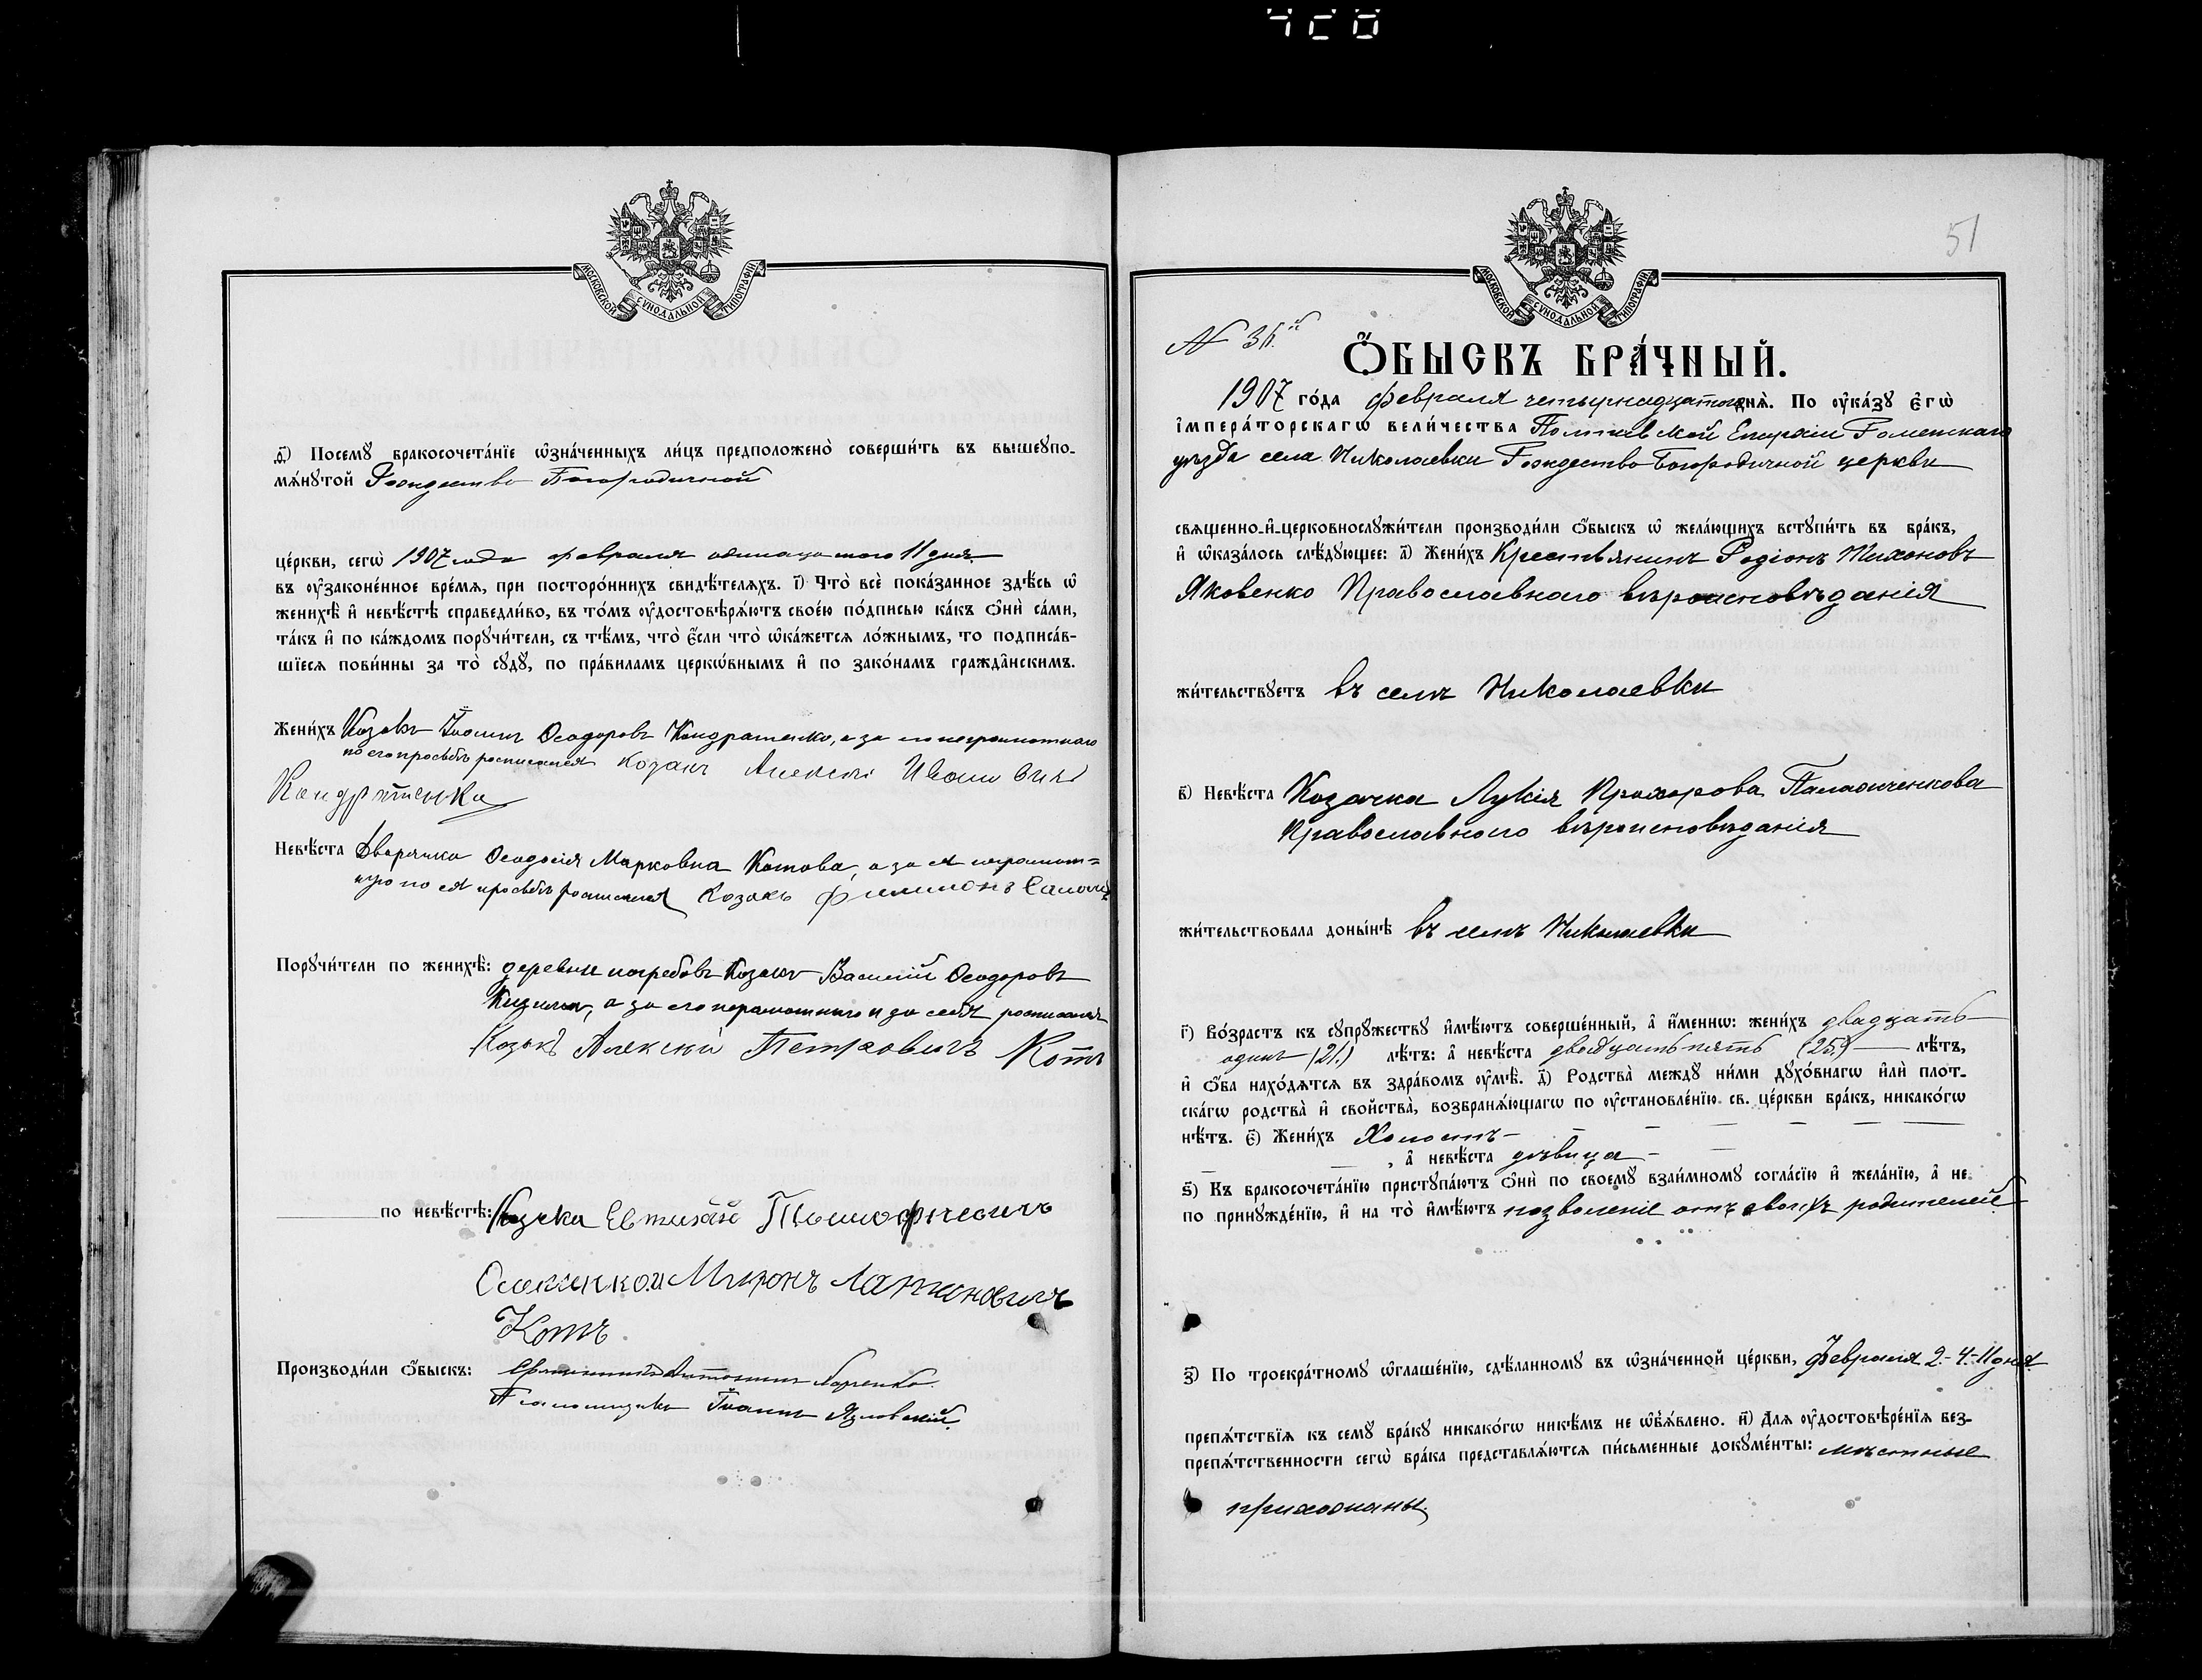 МОСКОВСКОЙ СУНОДАЛЬНОЙ ТИПОГРАФІИ
ѳ҃) Посемꙋ бракосочета́нїе ѡ҆зна́ченныхъ ли́цъ предположено̀ соверши́ть въ вышеупо-
мѧ́нꙋтой Рождество Богородичной
це́ркви, сегѡ̀ 1907 года февраля одинацатого 11 дня
въ оу҆законе́нное вре́мѧ, при посторо́ннихъ свидѣ́телѧхъ. і҃) Что̀ всѐ пока́занное здѣ́сь ѡ҆
женихѣ̀ и҆ невѣ́стѣ справедли́во, въ то́мъ оу҆достовѣрѧ́ютъ свое́ю по́дписью ка́къ ѻ҆нѝ са́ми,
та́къ и҆ по ка́ждомъ порꙋчи́тели, съ тѣ́мъ, что̀ є҆́сли что̀ ѡ҆ка́жетсѧ ло́жнымъ, то подписа́в-
шїесѧ пови́нны за то̀ сꙋдꙋ̀, по пра́виламъ церкѡ́внымъ и҆ по зако́намъ гражда́нскимъ.
Жени́хъ Козакъ Іоаннъ Ѳеодоровъ Кондратенко, а за его неграмотнаго
по его просьбѣ росписался Козакъ Алексѣй Иванович
Кондратенко
Невѣ́ста Дворянка Ѳеодосія Марковна Котова, а за ея неграмот=
ную по ея просьбѣ росписался Козакъ Филимонъ
Порꙋчи́тели по женихѣ̀: деревни погребовъ Козакъ Василій Ѳеодоровъ
а за его неграмотнаго и за себя росписался
Козакъ Алексѣй Петровичъ Котъ
по невѣ́стѣ: Евтихій Тимофѣевичъ
Миронъ Котъ
Производи́ли ѻ҆́быскъ:
Псаломщикъ Іоаннъ
51
МОСКОВСКОЙ СУНОДАЛЬНОЙ ТИПОГРАФІИ
Ѻ҆́БЫСКЪ БРА́ЧНЫЙ.
1907 го́да февраля четырнадцатого днѧ̀. По оу҆ка́зꙋ є҆гѡ̀
і҆мпера́торскагѡ вели́чества Полтавской Епархіи Роменскаго
уѣзда села Николаевки Рождество Богородичной церкви
свѧщенно-и҆-церковнослꙋжи́тели производи́ли ѻ҆́быскъ ѡ҆ жела́ющихъ встꙋпи́ть въ бра́къ,
и҆ ѡ҆каза́лось слѣ́дꙋющее: а҃) Жени́хъ Крестьянинъ Родіонъ Тихоновъ
Яковенко Православнаго вѣроисповѣданія
жи́тельствꙋетъ въ селѣ Николаевки
в҃) Невѣ́ста Козачка Лукія Прохорова
Православного вѣроисповѣданія
жи́тельствовала доны́нѣ въ селѣ Николаевки
г҃) Во́зрастъ къ сꙋпрꙋжествꙋ и҆мѣ́ютъ соверше́нный, а҆ и҆́меннѡ: жени́хъ двадцать
одинъ (21.) лѣ́тъ: а҆ невѣ́ста двадцать пять (25.) лѣ́тъ,
и҆ ѻ҆́ба нахо́дѧтсѧ въ здра́вомъ оу҆мѣ̀. д҃) Родства̀ междꙋ ни́ми дꙋхо́внагѡ и҆лѝ плот-
ска́гѡ родства̀ и҆ свойства̀, возбранѧ́ющагѡ по оу҆становле́нїю св. це́ркви бра́къ, никако́гѡ
нѣ́тъ. є҃) Жени́хъ Холостъ
, а҆ невѣ́ста дѣвица
ѕ҃) Къ бракосочета́нїю пристꙋпа́ютъ ѻ҆нѝ по своемꙋ̀ взаи́мномꙋ согла́сїю и҆ жела́нїю, а҆ не
по принꙋжде́нїю, и҆ на то̀ и҆мѣ́ютъ позволеніе отъ своихъ родителей
з҃) По троекра́тномꙋ ѡ҆глаше́нїю, сдѣ́ланномꙋ въ ѡ҆зна́ченной це́ркви, февраля 2-4-11 дня
препѧ́тствїѧ къ семꙋ̀ бра́кꙋ никако́гѡ никѣ́мъ не ѡ҆б̾ѧ́влено. и҃) Длѧ оу҆достовѣре́нїѧ без-
препѧ́тственности сегѡ̀ бра́ка представлѧ́ютсѧ пи́сьменные докꙋме́нты: мѣстные
прихожаны